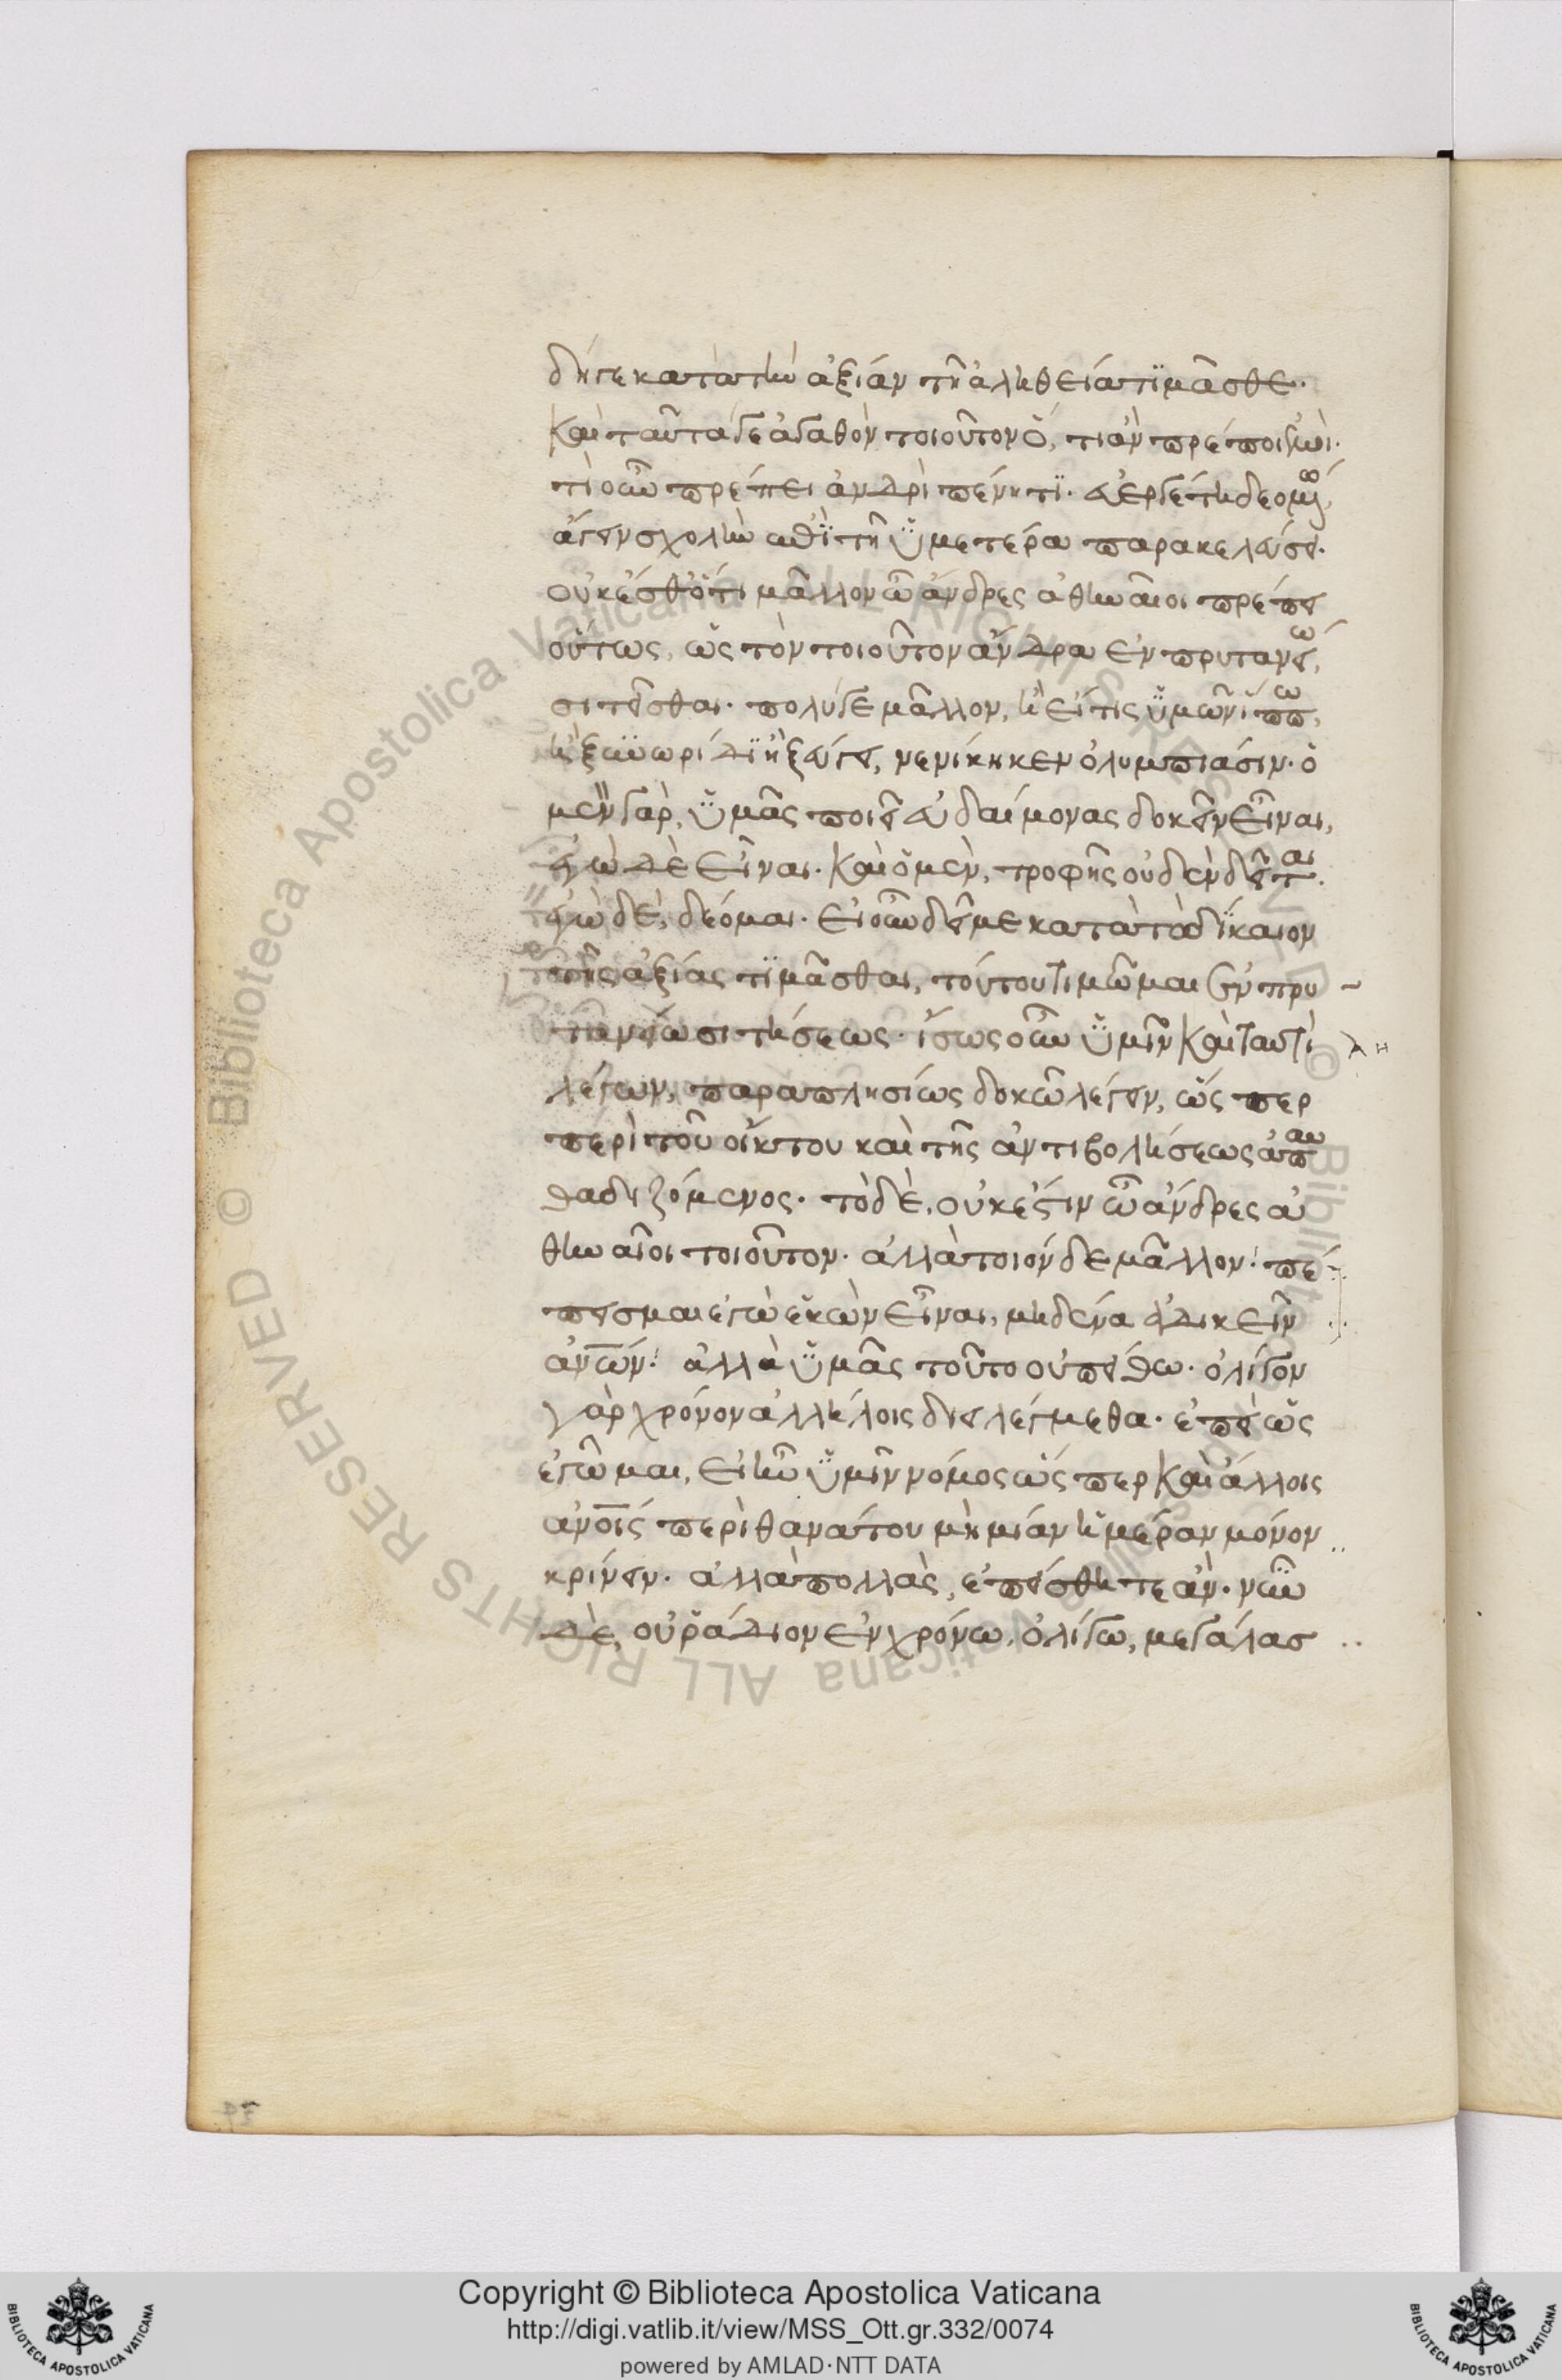 δήγε κατὰ τὴν ἀξίαν τῆ ἀληθεία τιμᾶσθε.
καὶ ταῦτά γε ἀγαθὸν τοιοῦτον ὅ, τι ἂν πρέποι ἐμοί.
τί οὖν πρέπει ἀνδρὶ πένητι. εὐεργέτη δεομένω,
ἄγειν σχολὴν ἐπὶ τῆ ὑμετέρα παρακελεύσει.
οὐκ ἔσθ ὅτι μᾶλλον ὦ ἄνδρες ἀθηναῖοι πρέπει
οὕτως, ὡς τὸν τοιοῦτον ἄνδρα ἐν πρυτανείω,
σιτεῖσθαι. πολύ γε μᾶλλον, ἢ εἴ τις ὑμῶν ἵππω,
ἢ ξυνωρίδι ἢ ζεύγει, νενίκηκεν ὀλυμπιάσιν. ὁ
μὲν γὰρ, ὑμᾶς ποιεῖ εὐδαίμονας δοκεῖν εἶναι,
ἐγὼ δὲ εἶναι. καὶ ὁ μὲν, τροφῆς οὐδὲν δεῖται.
ἐγὼ δὲ, δέομαι. εἰ οὖν δεῖ με κατὰ τὸ δίκαιον
τῆς ἀξίας τιμᾶσθαι, τούτου τιμῶμαι ἐν πρυ
τανείω σιτήσεως. ἴσως οὖν ὑμῖν καὶ ταυτὶ
λέγων, παραπλησίως δοκῶ λέγειν, ὥς περ
περὶ τοῦ οἴκτου καὶ τῆς ἀντιβολήσεως ἀπαυ
θαδιζόμενος. τὸ δὲ, οὐκ ἔστιν ὦ ἄνδρες ἀ
θηναῖοι τοιοῦτον. ἀλλὰ τοιόνδε μᾶλλον. πέ
πεισμαι ἐγὼ ἑκὼν εἶναι, μηδένα ἀδικεῖν
ἀνων. ἀλλὰ ὑμᾶς τοῦτο οὐ πείθω. ὀλίγον
γὰρ χρόνον ἀλλήλοις διειλέγμεθα. ἐπεὶ ὡς
ἐγὦμαι, εἰ ἦν ὑμῖν νόμος ὥς περ καὶ ἄλλοις
ἀνοις περὶ θανάτου μὴ μίαν ἡμέραν μόνον
κρίνειν. ἀλλὰ πολλὰς, ἐπείσθητε ἄν. νῦν
δὲ, οὐ ῥάδιον ἐν χρόνω, ὀλίγω, μεγάλας
Copyright © Biblioteca Apostolica Vaticana
http://digi.vatlib.it/view/MSS_Ott.gr.332/0074
powered by AMLAD·NTT DATA